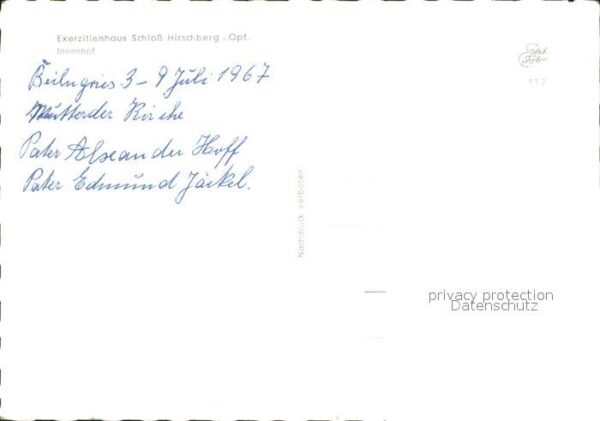 Exerzitienhaus Schloß Hirschberg - Opf.
Innenhof
Echt Foto
117
Beilngries 3 - 9 Juli 1967
Mutter der Kirche
Pater Alexander Hoff
Pater Edmund Jäckel.
Nachdruck verboten
privacy protection
Datenschutz